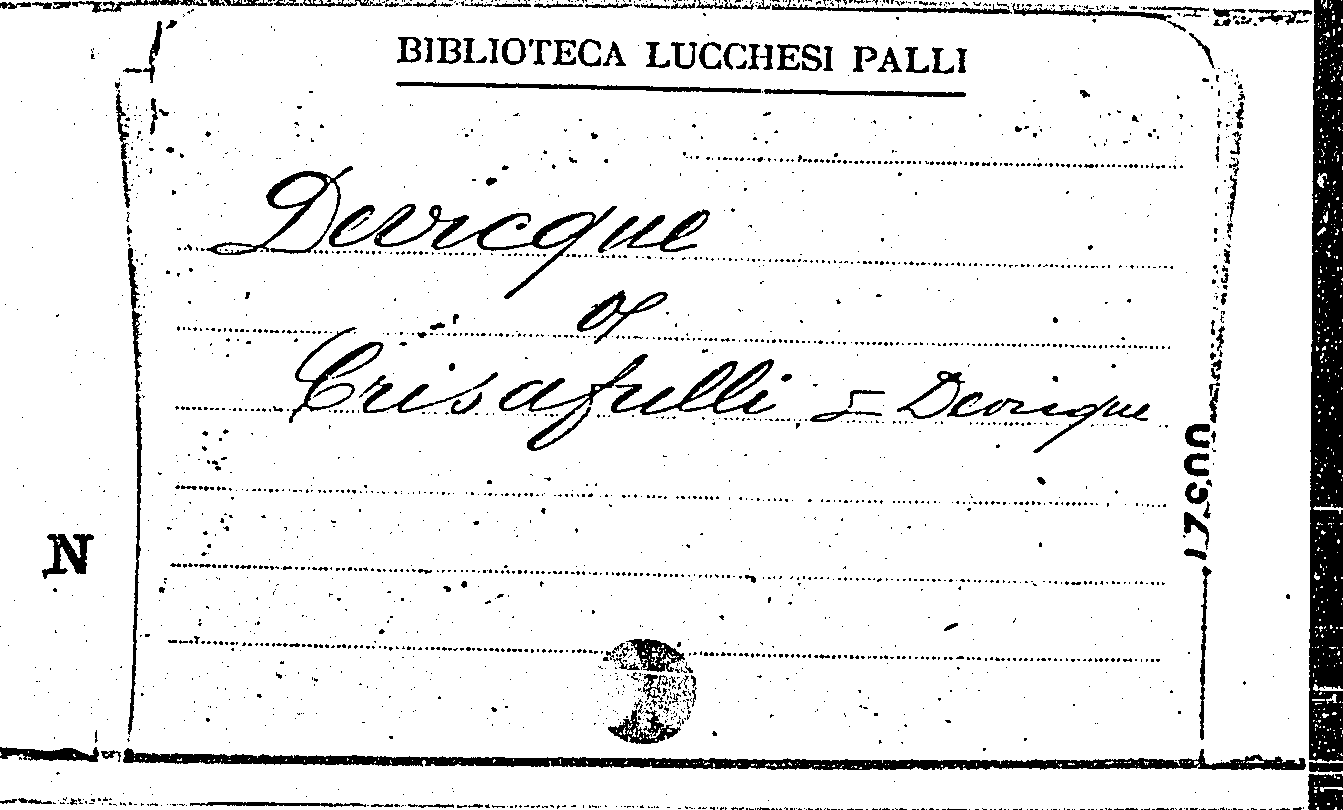 BIBLIOTECA LUCCHESI PALLI
Devicque
of
Crisafulli = Devicque
N
17500